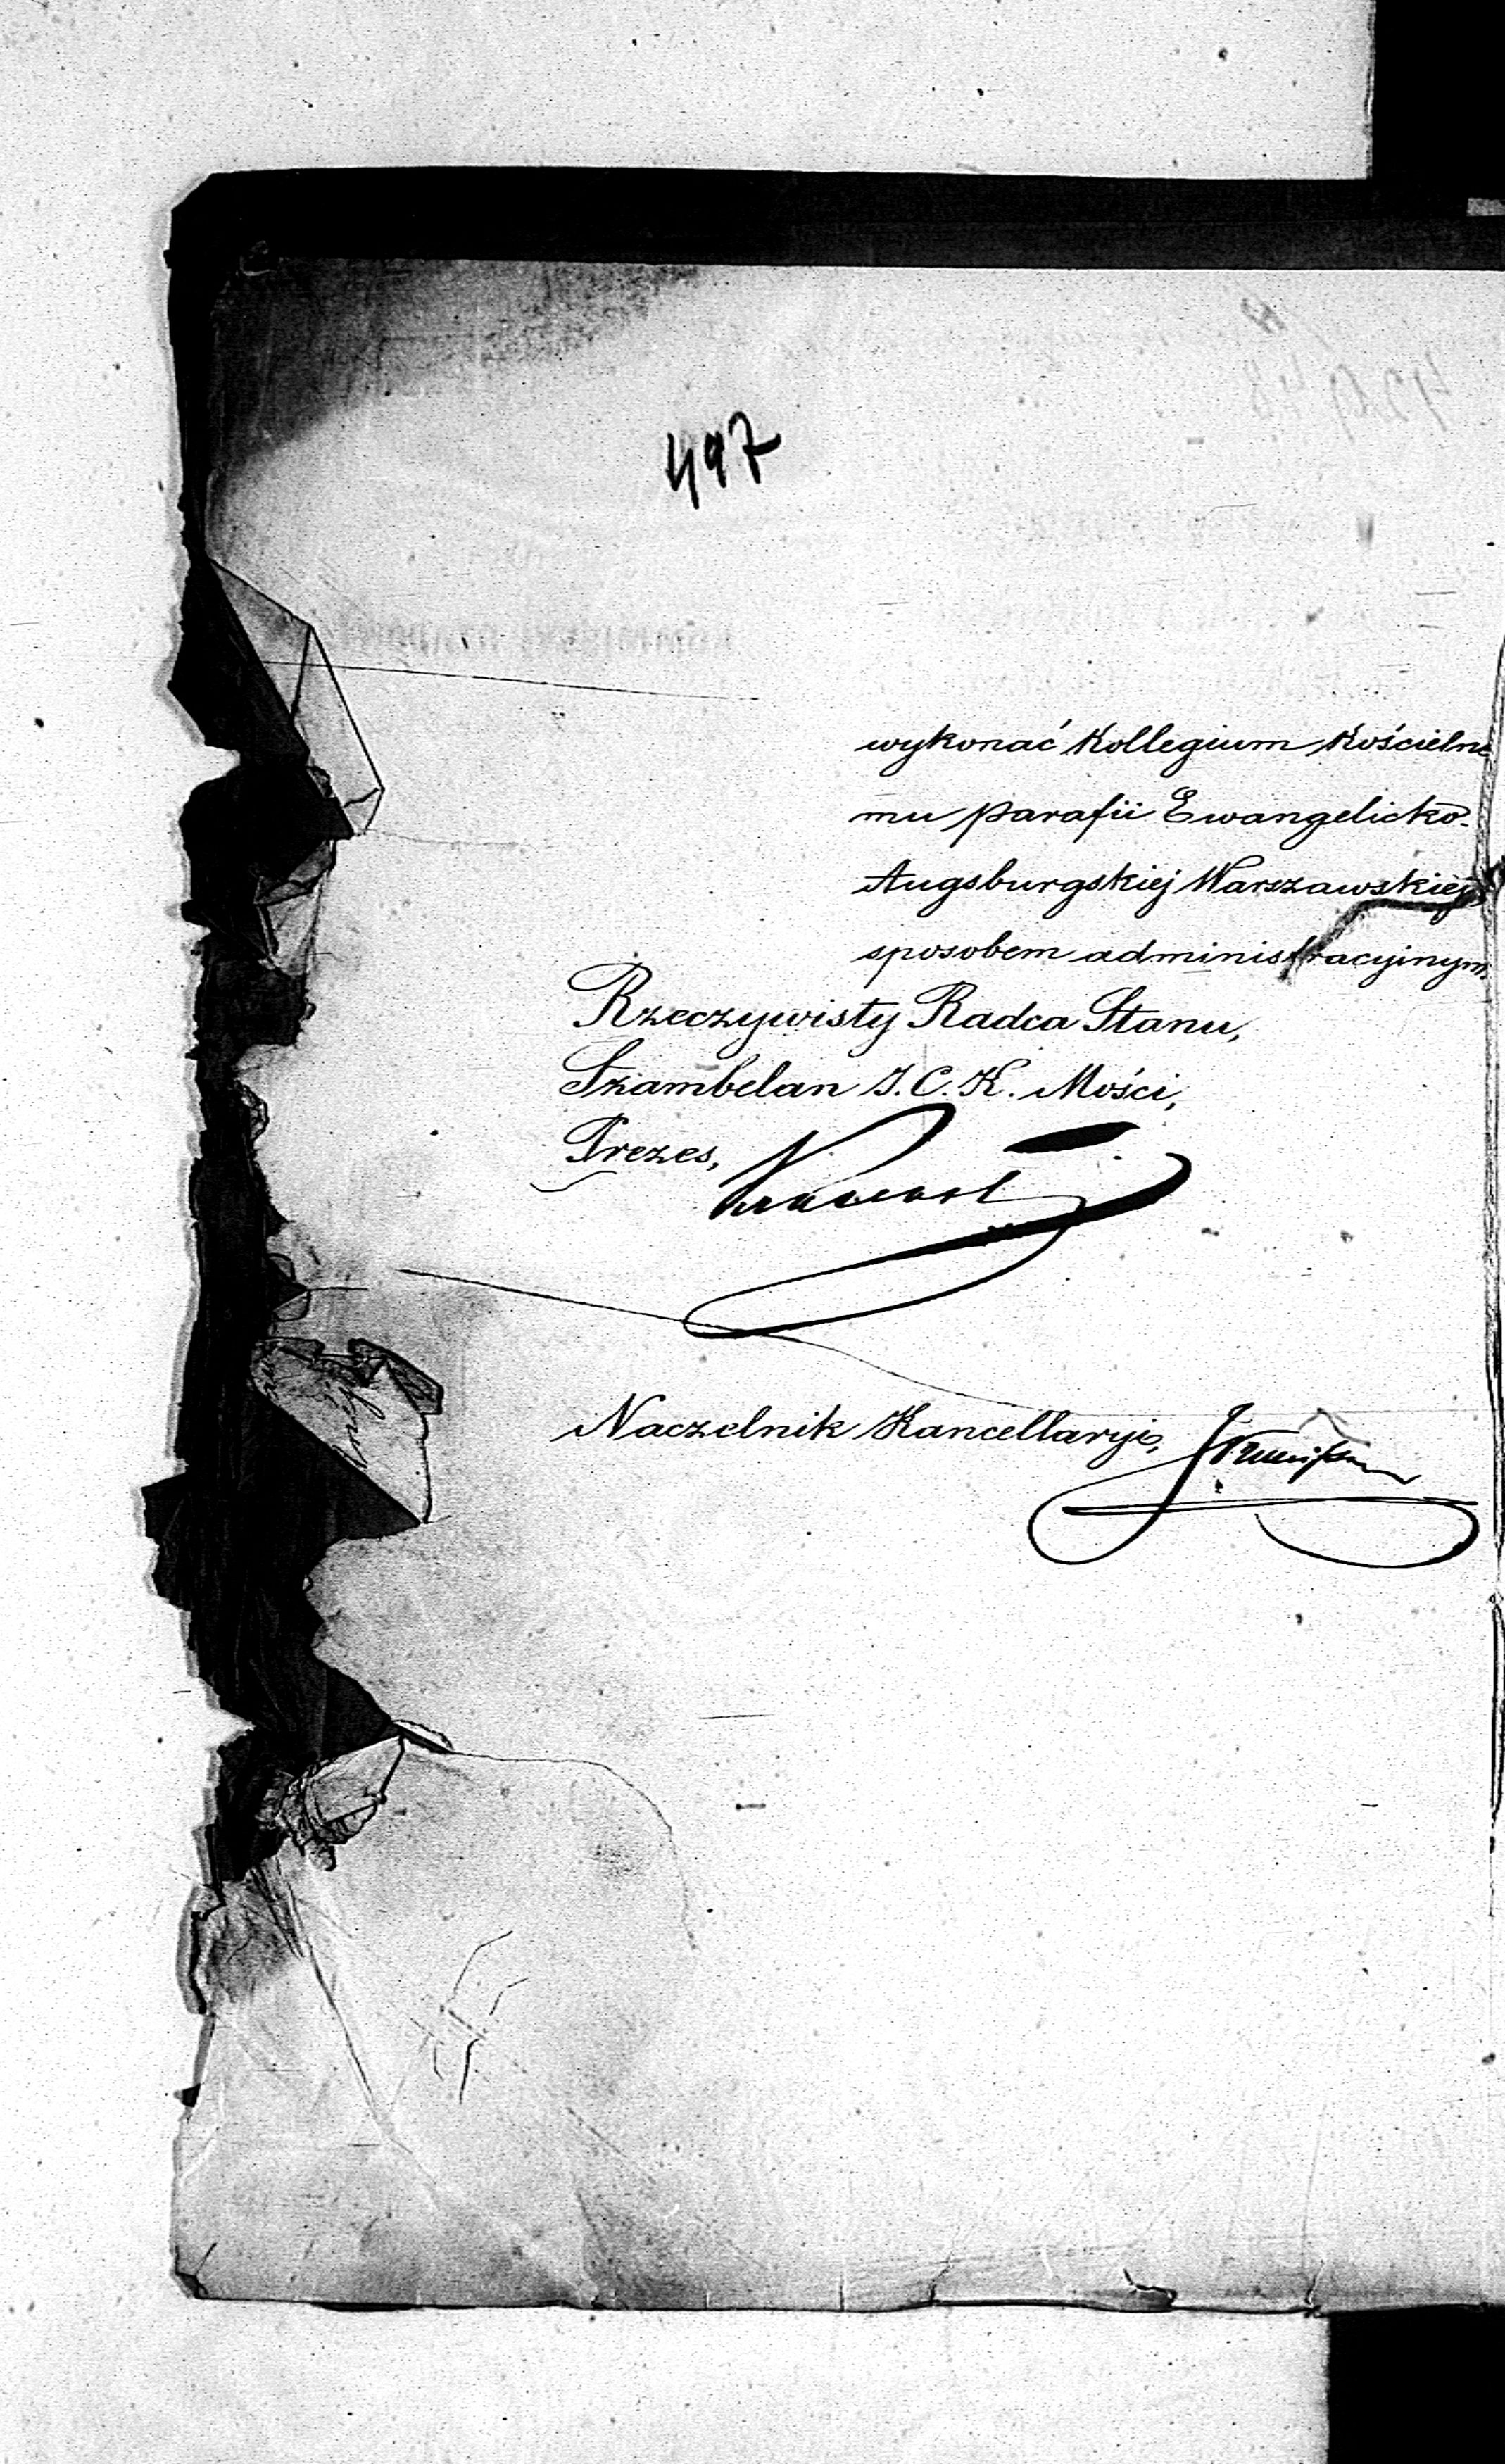 497
wykonać Kollegium Kościelne
mu parafii Ewangelicko-
Augsburgskiej Warszawskiej,
sposobem administracyjnym.
Rzeczywisty Radca Stanu,
Szambelan J. C. K. Mości,
Prezes,
Naczelnik Kancellaryi,